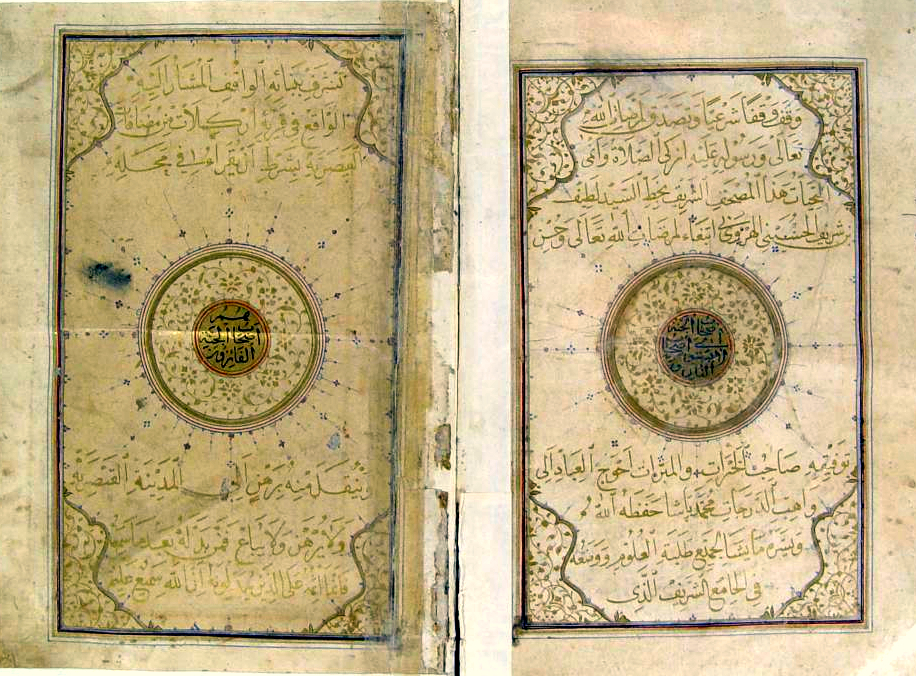 وقف وقفا شرعيا وتصدق لرضاء الله
تعالى ورسوله عليه ازكى الصلاة وانمى
التحيات هذا المصحف الشريف بخط السيد لطف
بن شريف الحسيني الهروي ابتغاء لمرضات الله تعالى وحسن
اصحاب الجنة
توفيقه صاحب الخيرات والمبرات احوج العباد الى
واهب الدرجات محمد باشا حفظه الله
ويسر ما يشا لجميع طلبة العلوم ووضعه
في الجامع الشريف الذي
تشرف ببنائه الواقف المشار اليه
الواقع في قرية من مضافات
القيصرية بشرط ان يقرأ في محله
هم
اصحاب الجنة
الفائزون
ينقل منه برهن الى المدينة القيصرية
ولا يرهن ولا يباع فمن بدله بعد ما سمعه
فانما اثمه على الذين يبدلونه ان الله سميع عليم